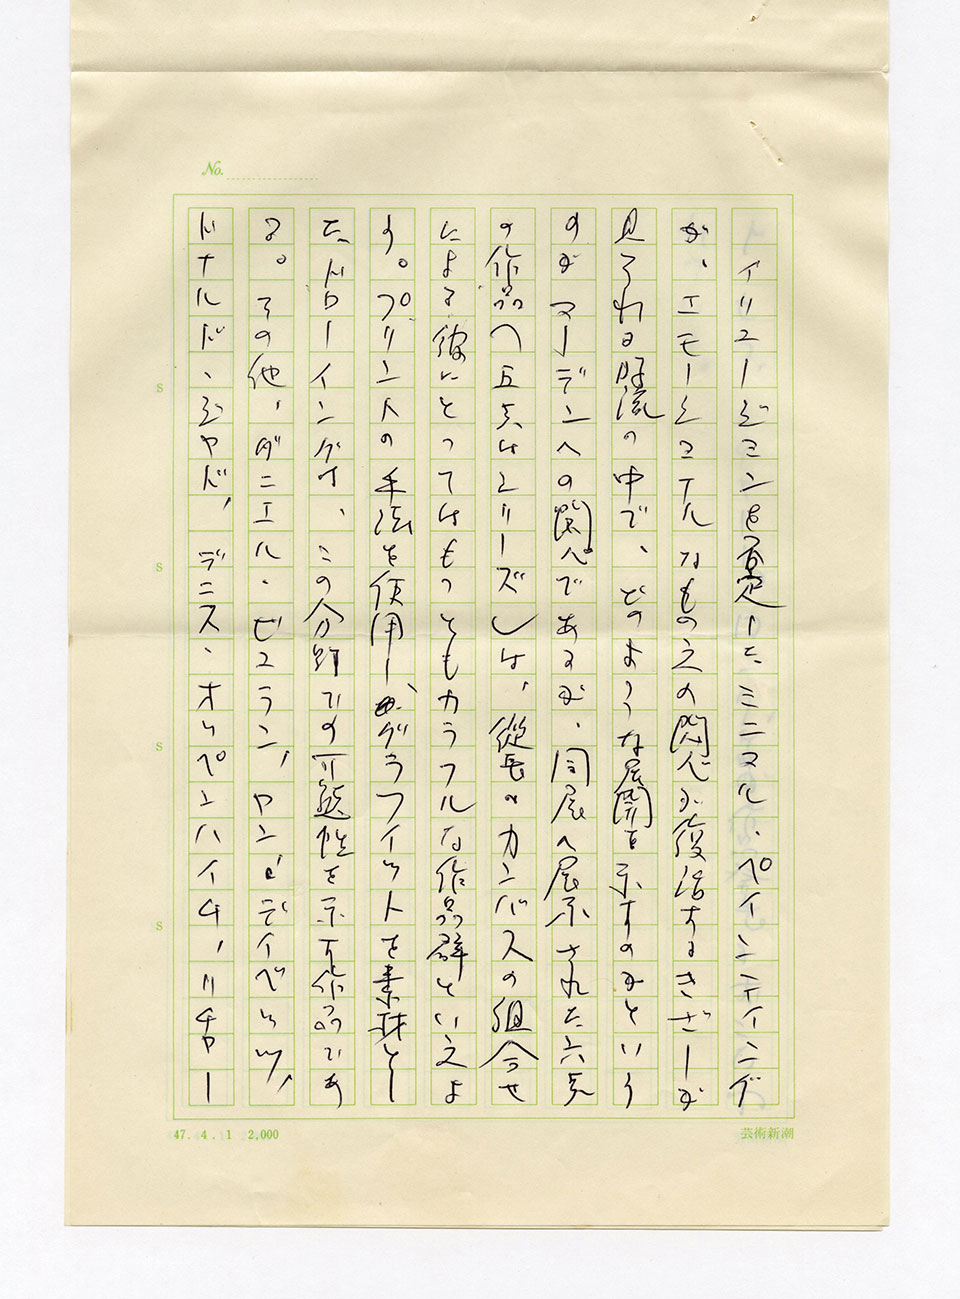 No.
イリュージョンを否定したミニマル・ペインティング
が、エモーショナルなものえの関心が復活するきざしが
見られる時流の中で、どのような展開を示すのかという
のがマーデンへの関心であるが、同展へ展示された六点
の作品へ五点はシリーズ)は、従長のカンバスの組合せ
による彼にとってはもっともカラフルな作品群といえよ
う。プリントの手法を使用し、グラファイトを素材とし
た、ドローイングは、この分野での可能性を示す作品であ
る。その他、ダニエル・ビュラン、ヤン・ディベッツ、
ドナルド・ジャド、デニス・オッペンハイム、リチャー
S
S
S
S
47. 4. 1 2,000
芸術新潮